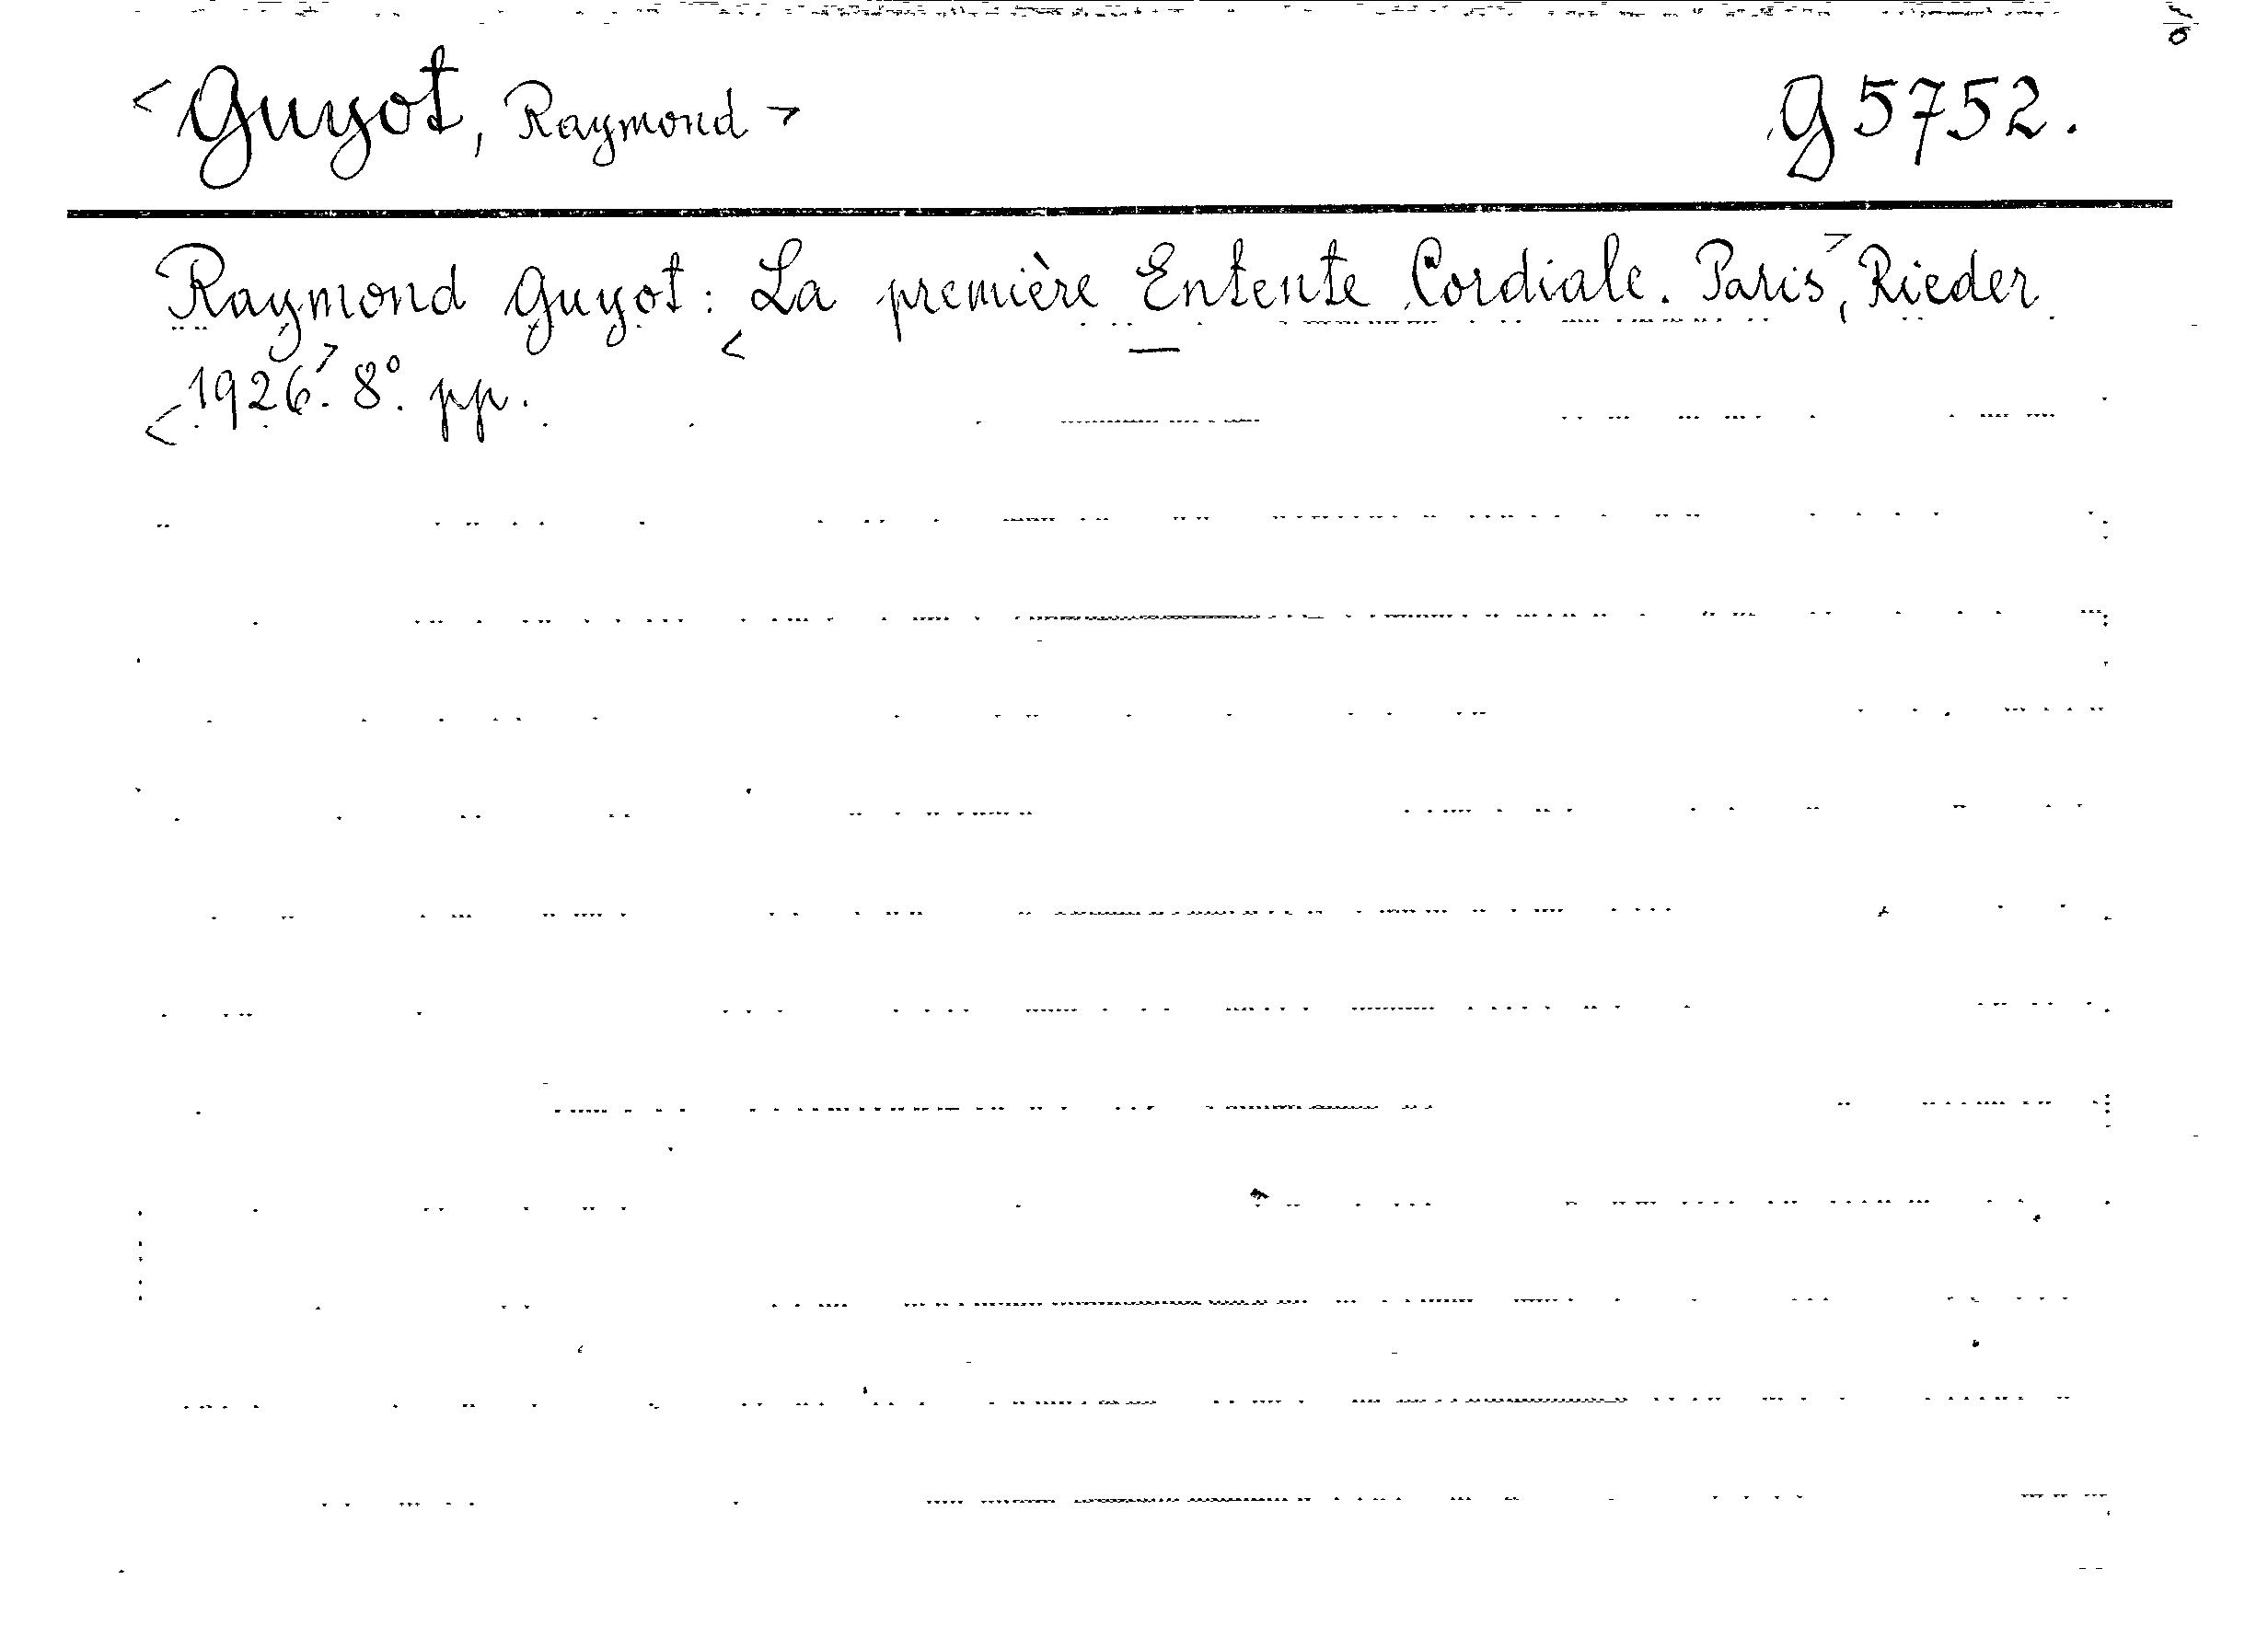 <Guyot, Raymond> G 5752.
Raymond Guyot: <La première Entente Cordiale. Paris>, Rieder
<1926>. 8°. pp.